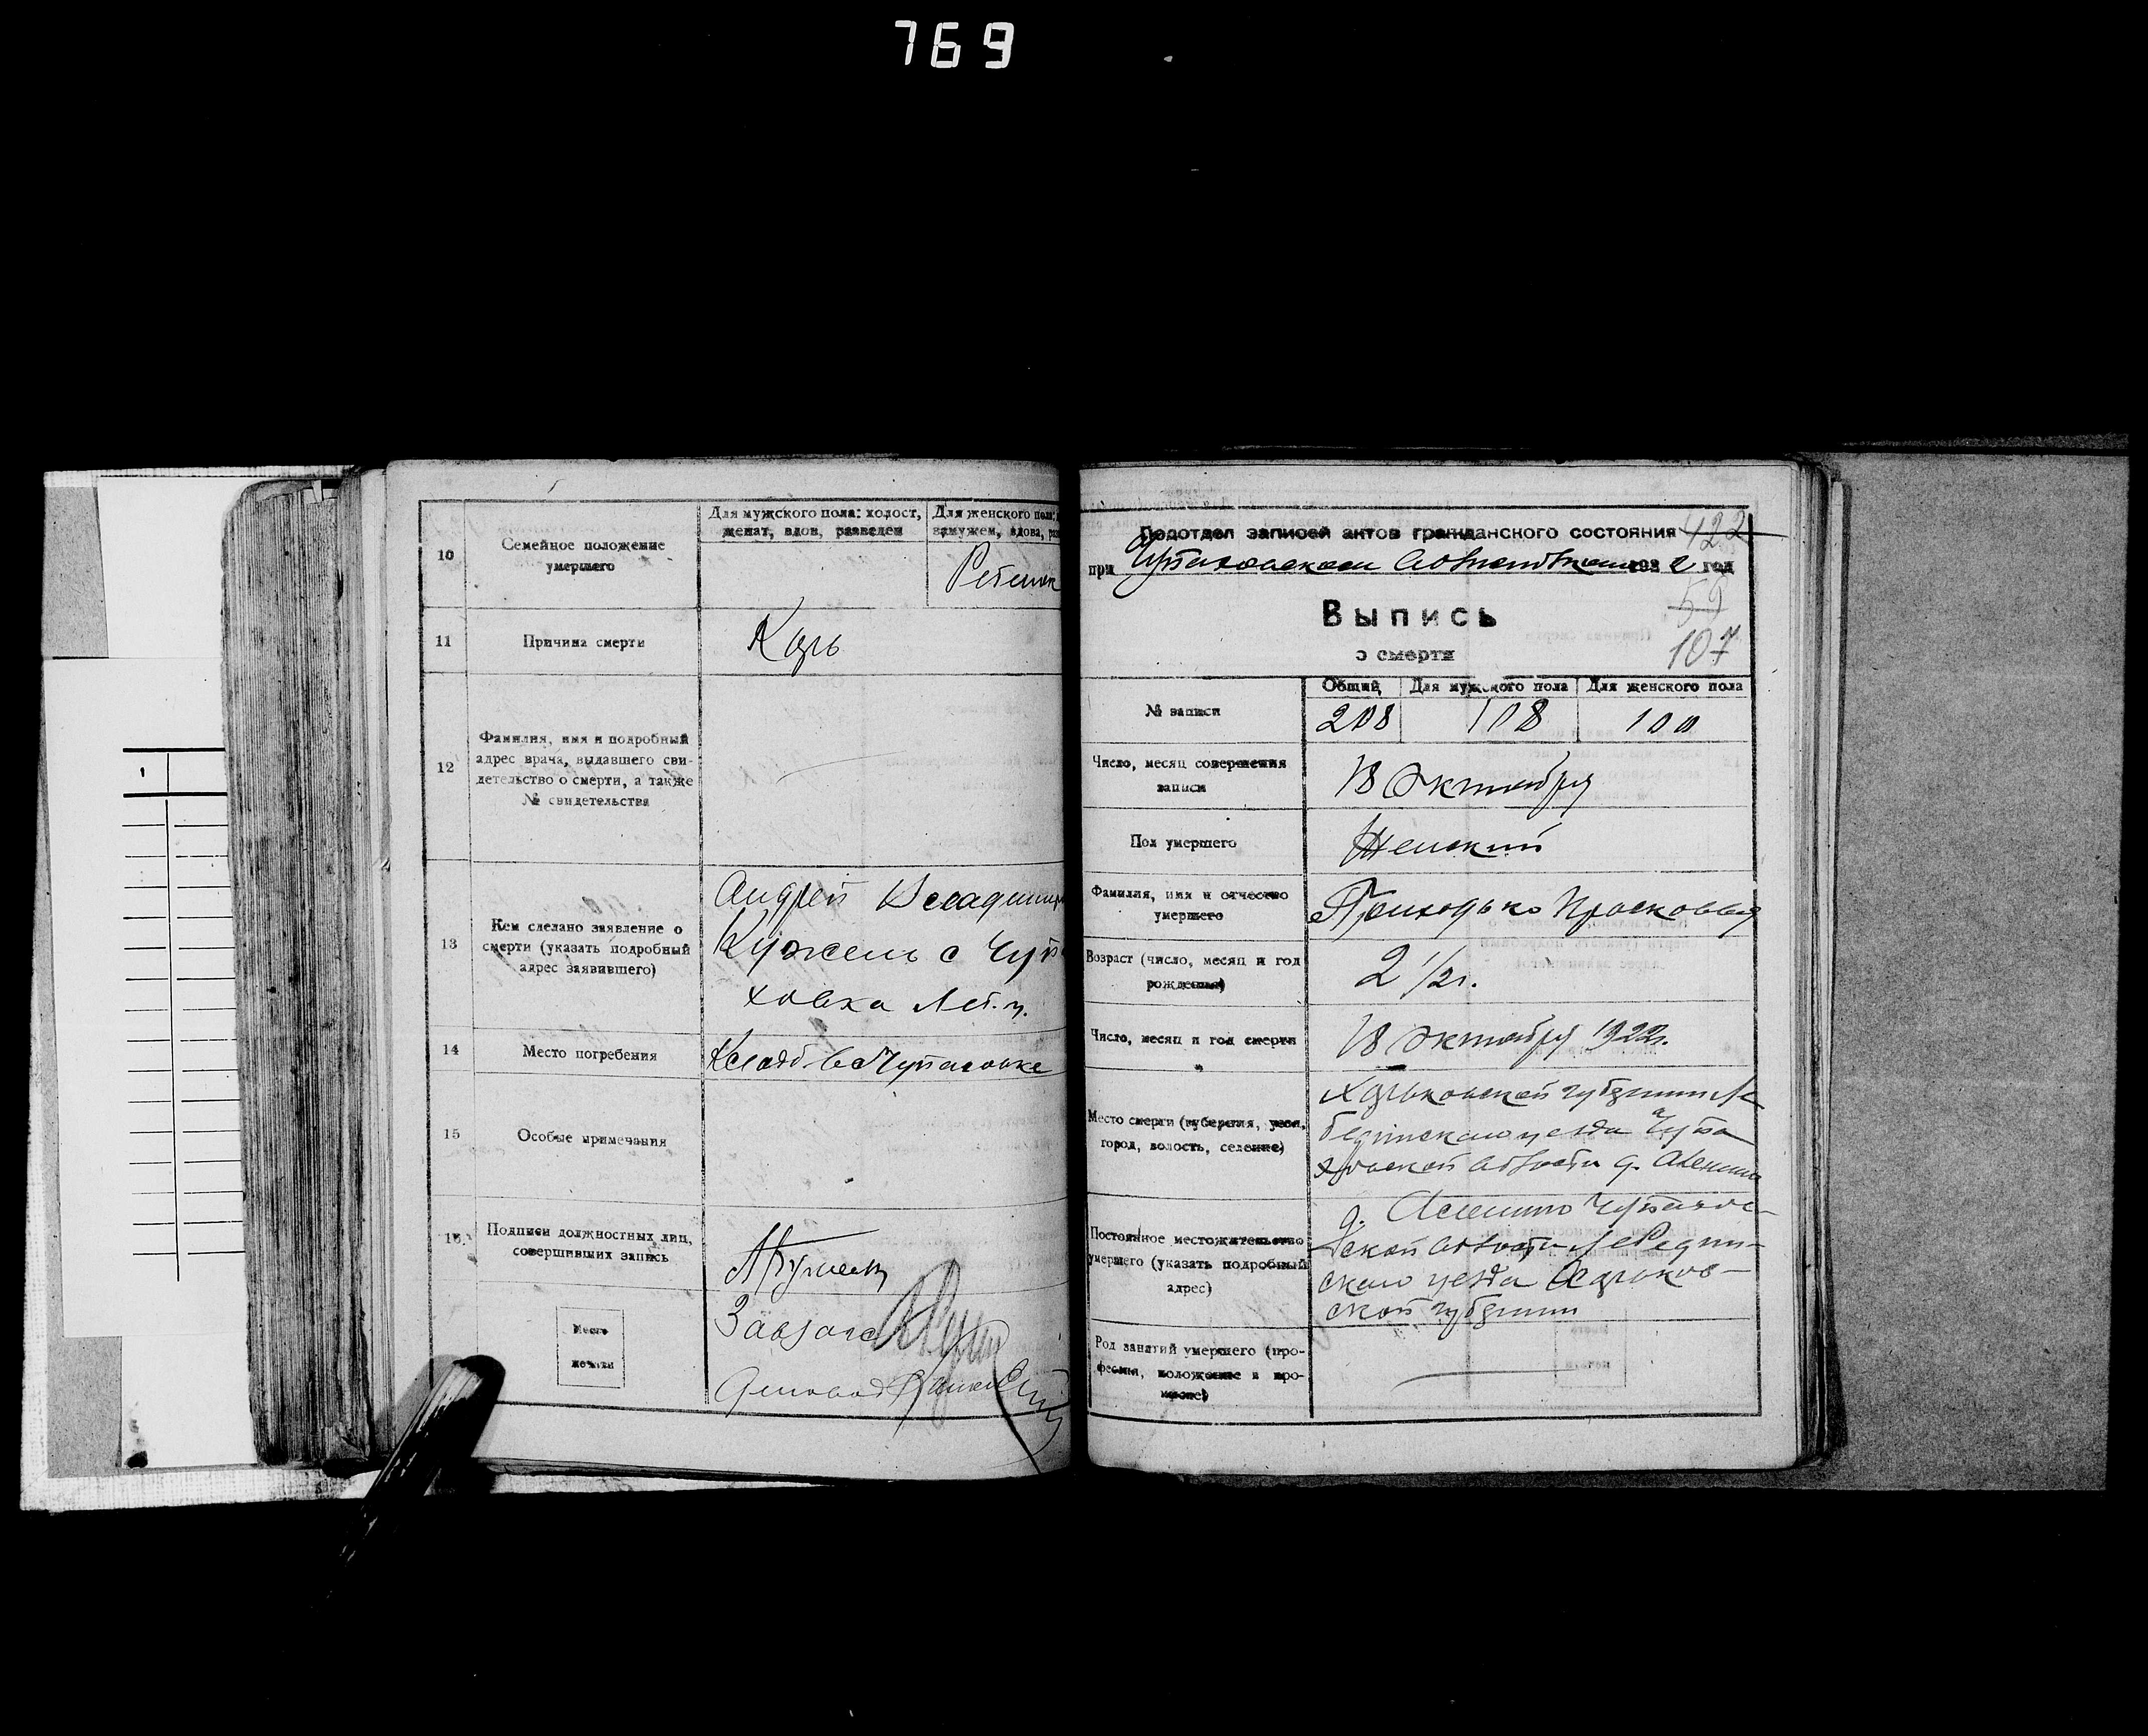 769
10
Семейное положение
умершего
Для мужского пола: холост,
женат, вдов, разведен
Для женского пола:
замужем, вдова, раз
Ребенок
11
Причина смерти
Корь
12
Фамилия, имя и подробный
адрес врача, выдавшего сви-
детельство о смерти, а также
№ свидетельства
13
Кем сделано заявление о
смерти (указать подробный
адрес заявившего)
Андрей
Кужель с Чупа
ховка Леб. у.
14
Место погребения
Кладб в с Чупаховке
15
Особые примечания
16.
Подписи должностных лиц,
совершивших запись
Место
печати
Завзагс
Подотдел записей актов гражданского состояния
422
при Чупаховском 192 2 год
59
Выпись
о смерти
107
№ записи
Общий
Для мужского пола
Для женского пола
208
108
100
Число, месяц совершения
записи
18 Октября
Пол умершего
Женский
Фамилия, имя и отчество
умершего
Приходько Прасковья
Возраст (число, месяц и год
рождения)
2 1/2 г.
Число, месяц и год смерти
18 Октября 1922 г.
Место смерти (губерния, уезд,
город, волость, селение)
Харьковской губернии Ле
бединского уезда Чупа
ховской волости д.
Постоянное местожительство
умершего (указать подробный
адрес)
д. Чупахов-
ской волости Лебедин-
ского уезда Харьков-
ской губернии
Род занятий умершего (про-
фессия, положение в про-
мысле)